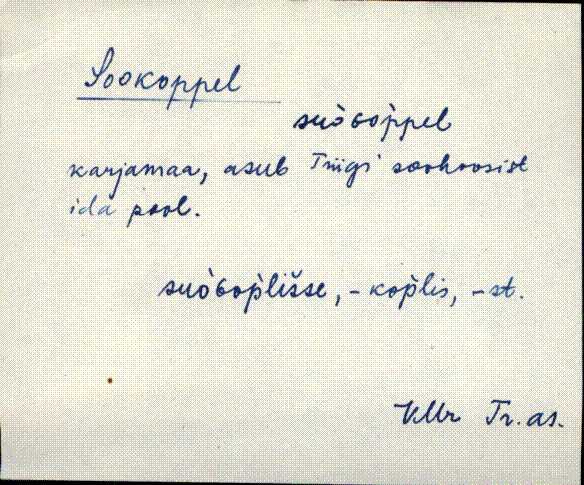 Sookoppel
suòGop̀pel
karjamaa, asub Tiigi soohoosist
ida pool.
suòGop̀lišše, -kop̀lis, -st.
VMr Tr. as.